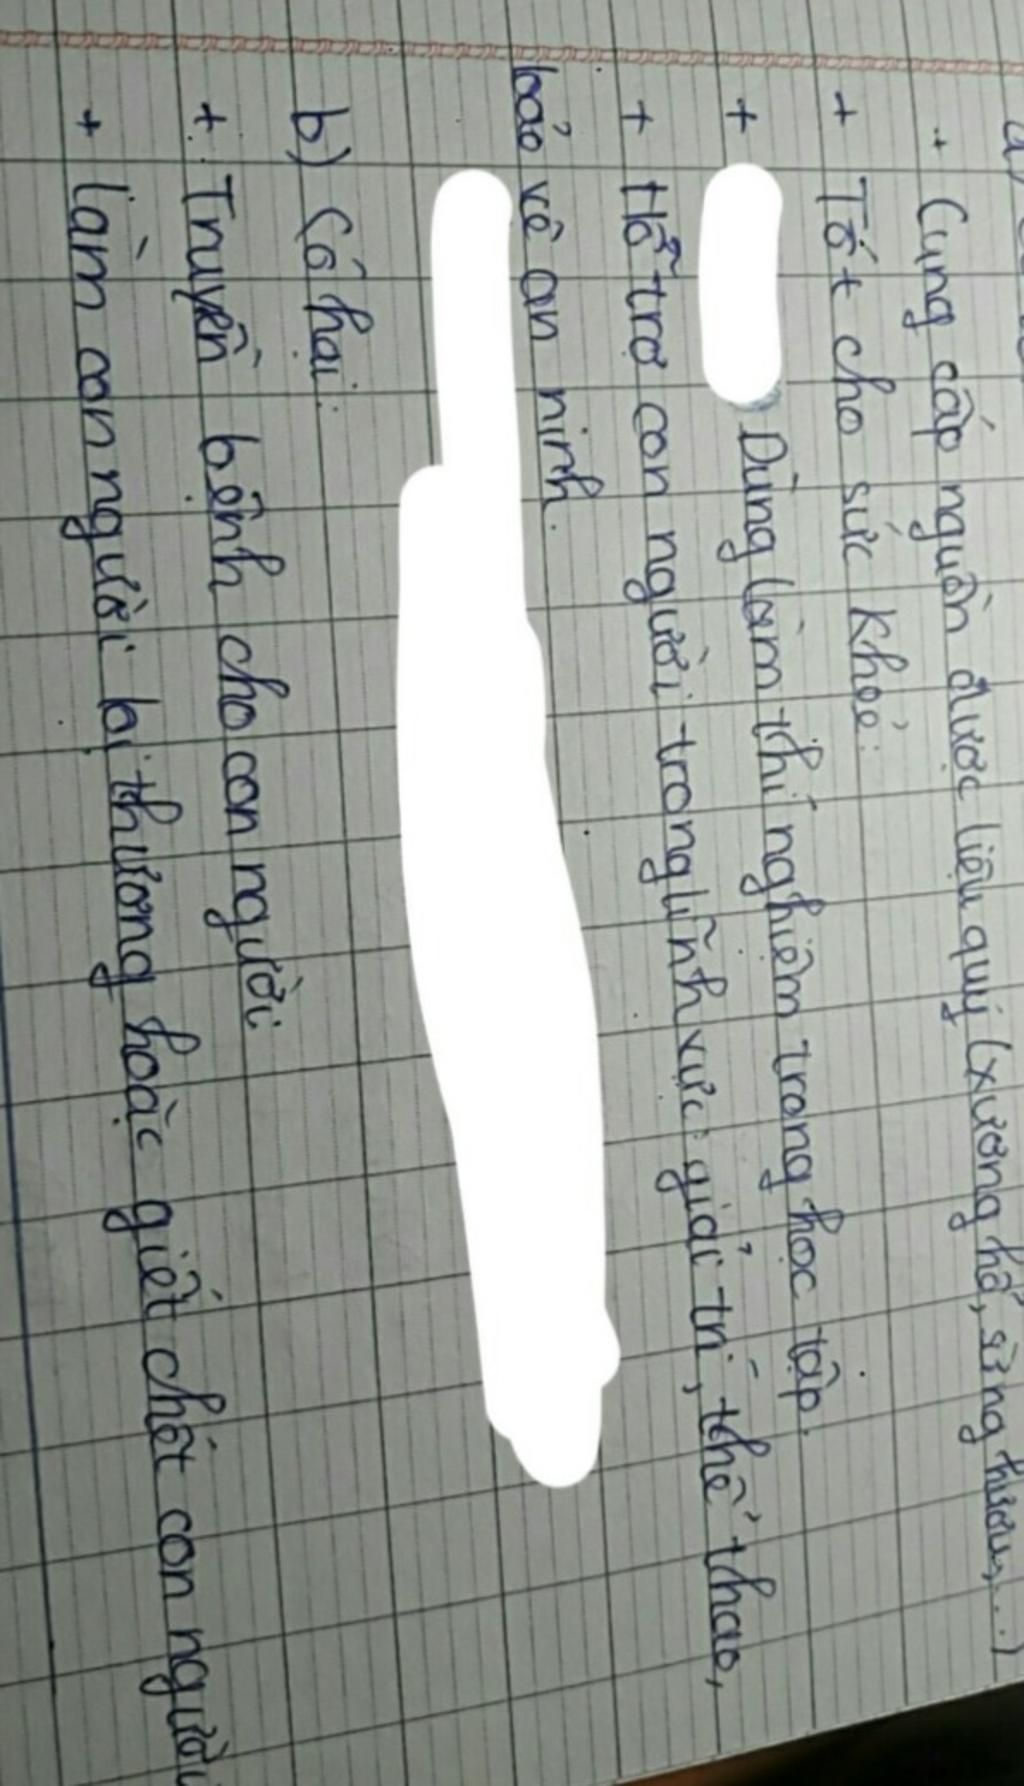 a)
+ Cung cấp nguồn dược liệu quý (xương hổ, sừng hươu,...)
+ Tốt cho sức khoẻ.
+ Dùng làm thí nghiệm trong học tập.
+ Hỗ trợ con người trong lĩnh vực: giải trí, thể thao,
bảo vệ an ninh.
b) Có hại:
+ Truyền bệnh cho con người
+ Làm con người bị thương hoặc giết chết con người